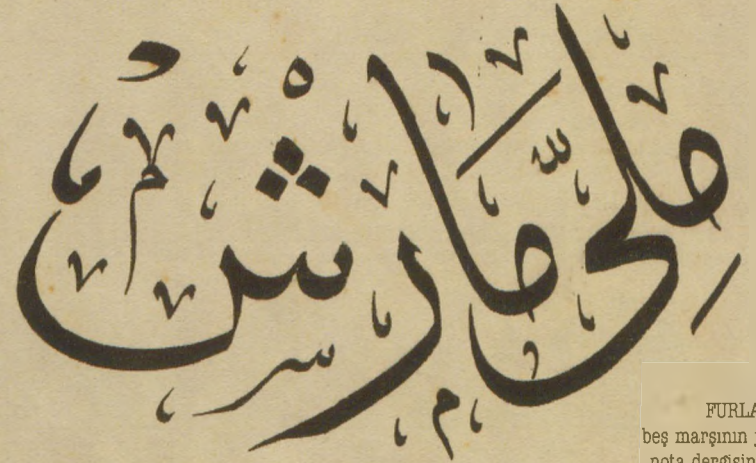 ملّی مارش
FURLA
beş marşının
nota dergisin